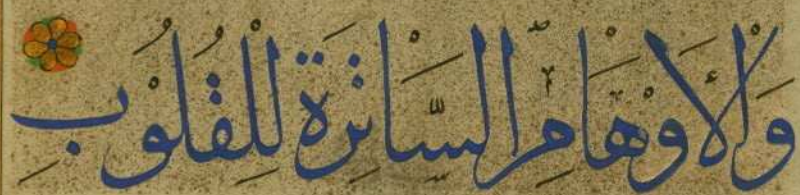 وَالْأَوْهَامِ السَّاتِرَةِ لِلْقُلُوْبِ